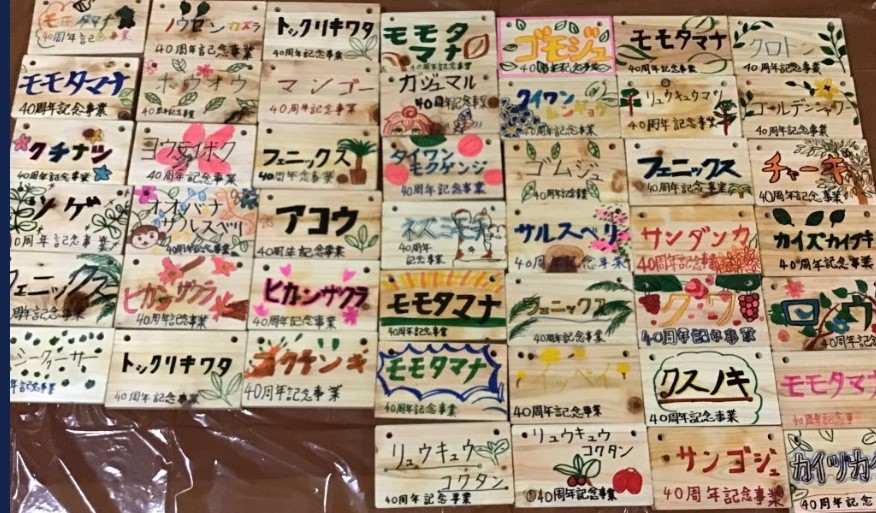 モモタマナ
40周年記念事業
ノウゼンカズラ
40周年記念事業
トックリキワタ
40周年記念事業
モモタ
マナ
40周年記念事業
ゴモジュ
40周年記念事業
モモタマナ
40周年記念事業
クロトン
40周年記念事業
モモタマナ
40周年記念事業
ホウオウ
40周年記念事業
マンゴー
40周年記念事業
ガジュマル
40周年記念事業
タイワン
レンギョウ
40周年記念事業
リュウキュウマツ
40周年記念事業
ゴールデンシャワー
40周年記念事業
クチナシ
40周年記念事業
ヨウテイボク
40周年記念事業
フェニックス
40周年記念事業
タイワン
モクゲンジ
40周年記念事業
ゴムジュ
40周年記念事業
フェニックス
40周年記念事業
チャーギ
40周年記念事業
ツゲ
40周年記念事業
オオバナ
サルスベリ
40周年記念事業
アコウ
40周年記念事業
ネズミモチ
40周年
記念事業
サルスベリ
40周年記念事業
サンダンカ
40周年記念事業
カイズカイブキ
40周年記念事業
フェニックス
周年記念事業
ヒカンザクラ
40周年記念事業
ヒカンザクラ
40周年記念事業
モモタマナ
40周年記念事業
フェニックス
40周年記念事業
クワ
40周年記念事業
40周年記念事業
シークヮーサー
年記念事業
トックリキワタ
40周年記念事業
コクテンギ
40周年記念事業
モモタマナ
40周年記念事業
イッペイ
40周年記念事業
クスノキ
40周年記念事業
モモタマナ
40周年記念事
リュウキュウ
コクタン
40周年記念事業
リュウキュウ
コクタン
40周年記念事業
サンゴジュ
40周年記念事業
カイヅカイ
40周年記念